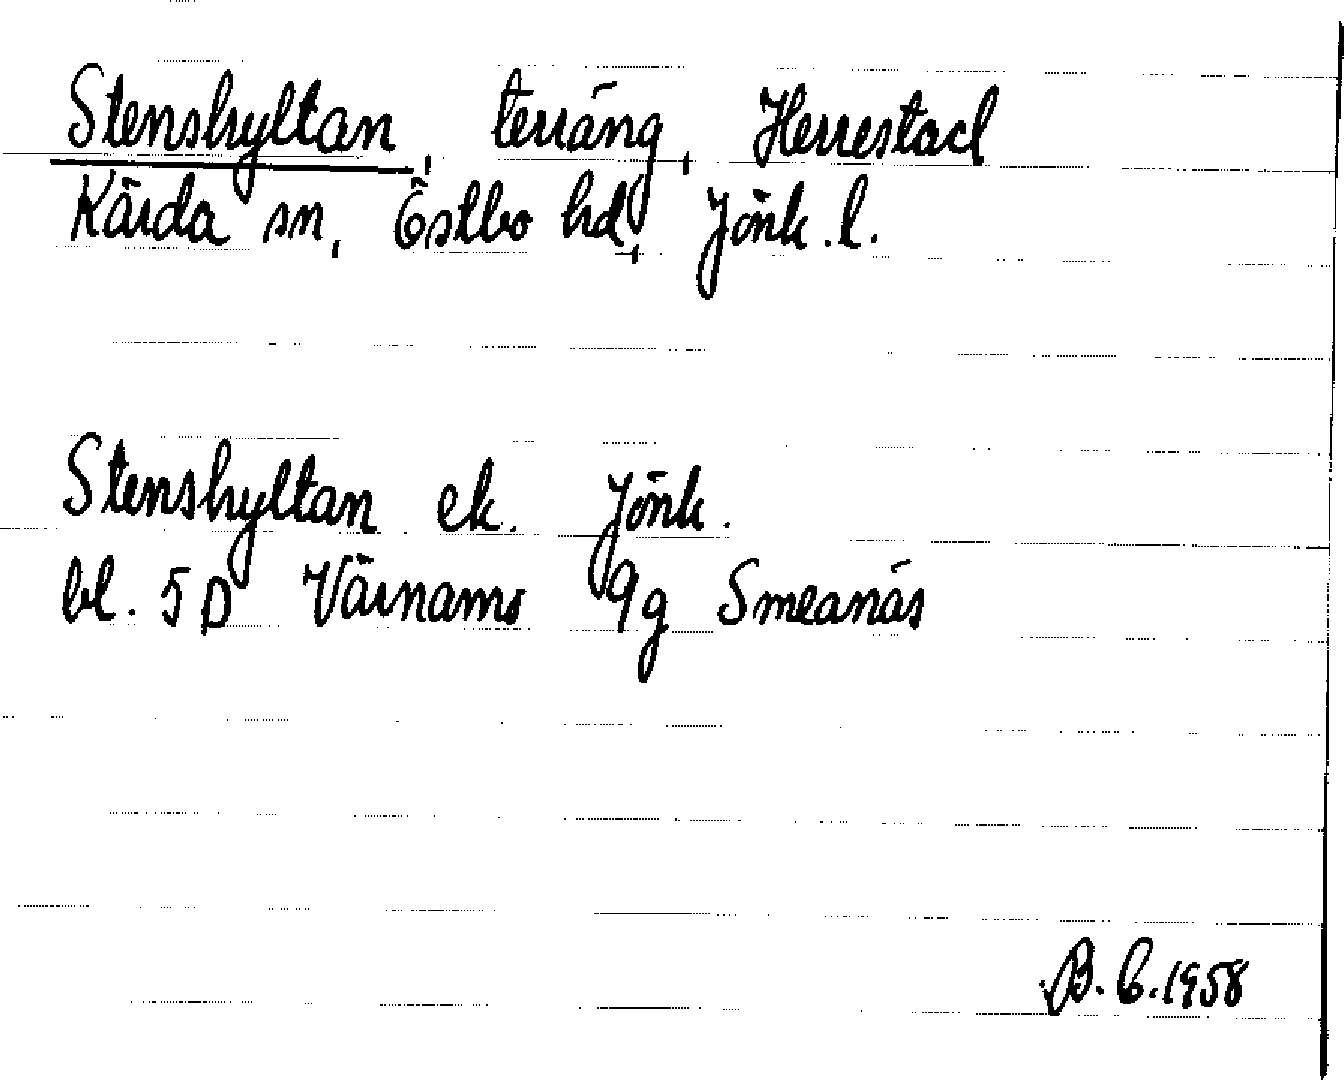 Stenshyltan, terräng, Herrestad
Kärda sn, Östbo hd, Jönk. l.
Stenshyltan ek. Jönk.
bl. 5D Värnamo 9g Smeanäs
B. E. 1958